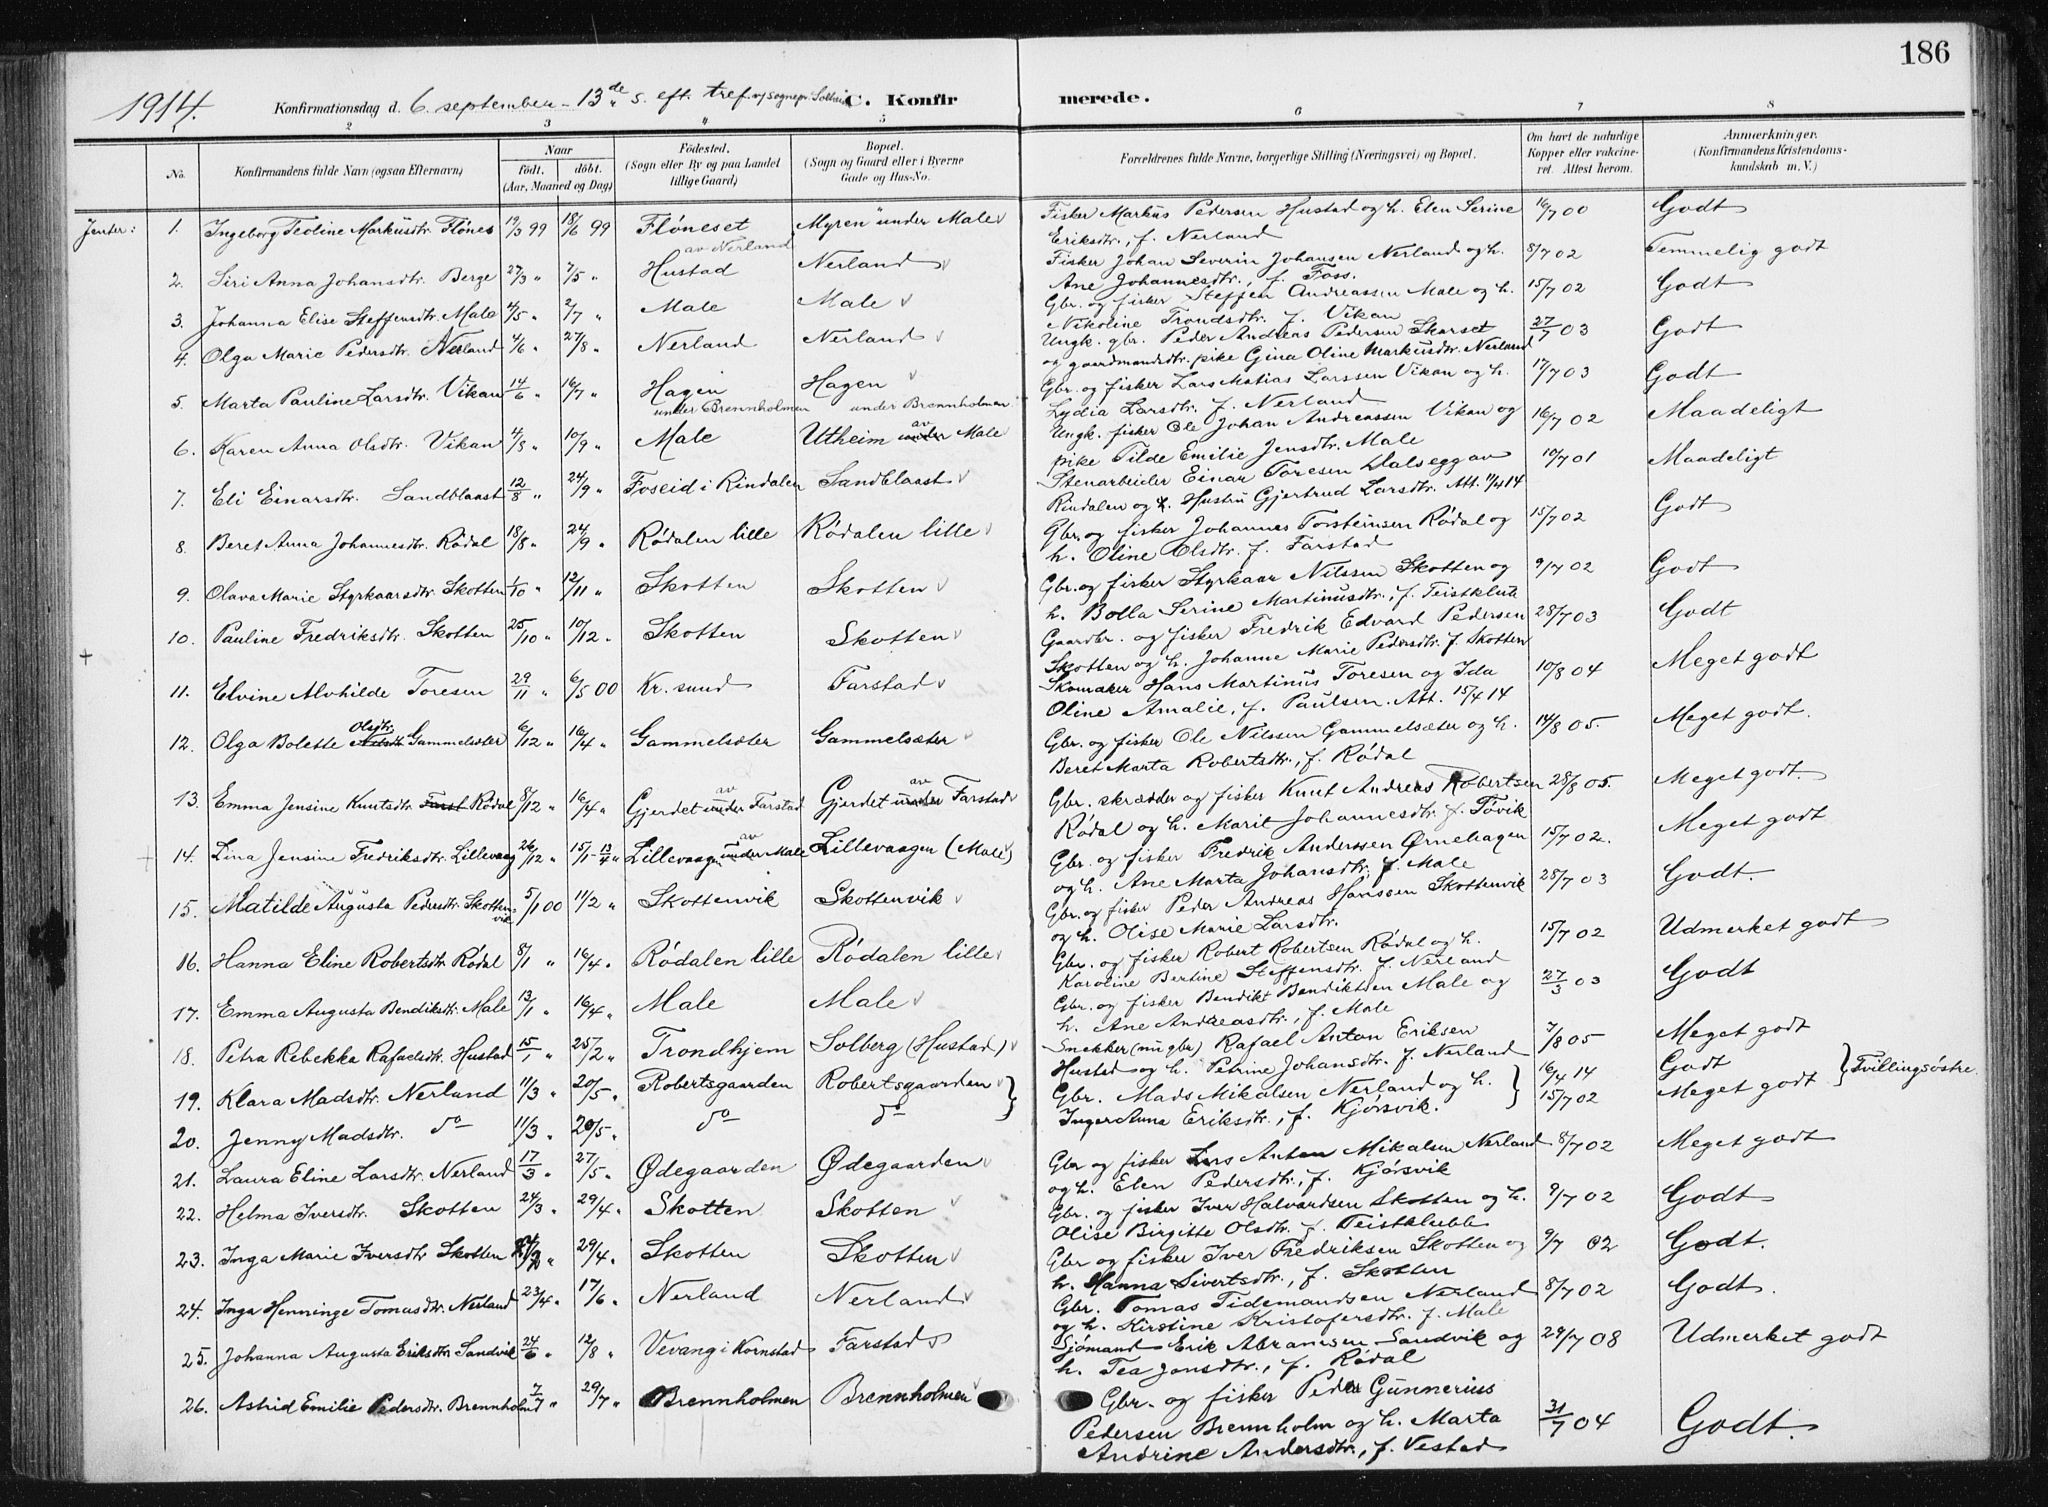 186
1914. Konfirmationsdag d. 6. september - 13de s. eft. tref. C. Konfirmerede.
2 3 4 5 6 7 8
No. Konfirmandens fulde Navn (ogsaa Efternavn) Naar født. døbt. (Aar, Maaned og Dag) Fødested. (Sogn eller By og paa Landet tillige Gaard) Bopæl. (Sogn og Gaard eller i Byerne Gade og Hus-No. Forældrenes fulde Navne, borgerlige Stilling (Næringsvei) og Bopæl. Om havt de naturlige Kopper eller vaccineret. Attest herom. Anmærkninger. (Konfirmandens Kristendomskundskab m. V.)
Jenter: 1. Ingeborg Teoline Markusdtr. Flønes 19/3 99 18/6 99 Fløneset av Nerland Myren under Male Fisker Markus Pedersen Hustad og h. Elen Serine Eriksdtr., f. Nerland 16/7 00 Godt
2. Siri Anna Johansdtr. Berge 27/3 " 7/5 " Hustad Nerland Fisker Johan Severin Johansen Nerland og h. Ane Johannesdtr., f. Foss. 8/7 02 Temmelig godt
3. Johanna Elise Steffensdtr. Male 4/5 " 2/7 " Male Male Gbr. og fisker Steffen Andreassen Male og h. Nikoline Trondsdtr. f. Vikan 15/7 02 Godt
4. Olga Marie Pedersdtr. Nerland 4/6 " 27/8 " Nerland Nerland Ungk. gbr. Peder Andreas Pedersen Skarset og gaardmandsdtr. pike Gina Oline Markusdtr. Nerland 27/7 03 Godt
5. Marta Pauline Larsdtr. Vikan 14/6 " 16/7 " Hagen under Brennholmen Hagen under Brennholmen Gbr. og fisker Lars Matias Larssen Vikan og h. Lydia Larsdtr. f. Nerland 17/7 03 Godt
6. Karen Anna Olsdtr. Vikan 4/8 " 10/9 " Male Utheim av under Male Ungk. fisker Ole Johan Andreassen Vikan og pike Tilde Emilie Jensdtr. Male 16/7 02 Maadeligt
7. Eli Einarsdtr. Sandblaast 12/8 " 24/9 " Foseid i Rindalen Sandblaast Stenarbeider Einar Toresen Dalsegg av Rindalen og h. Hustru Gjertrud Larsdtr. Att. 11/4 14 10/7 01 Maadeligt
8. Beret Anna Johannesdtr. Rødal 18/8 " 24/9 " Rødalen lille Rødalen lille Gbr. og fisker Johannes Torsteinsen Rødal og h. Oline Olsdtr. f. Farstad 15/7 02 Godt
9. Olava Marie Styrkaarsdtr. Skotten 1/10 " 12/11 " Skotten Skotten Gbr. og fisker Styrkaar Nilssen Skotten og h. Bolla Serine Martinusdtr., f. Teistklub 9/7 02 Godt
10. Pauline Fredriksdtr. Skotten 25/10 " 10/12 " Skotten Skotten Gaardbr. og fisker Fredrik Edvard Pedersen Skotten og h. Johanne Marie Pedersdtr. f. Skotten 28/7 03 Godt
11. Elvine Alvhilde Toresen 29/11 " 6/5 00 Kr. sund Farstad Skomaker Hans Martinus Toresen og Ida Oline Amalie, f. Paulsen. Att. 15/4 14 10/8 04 Meget godt
12. Olga Bolette Olsdtr. Nilsdtr. Gammelsæter 6/12 " 16/4 " Gammelsæter Gammelsæter Gbr. og fisker Ole Nilssen Gammelsæter og h. Beret Marta Robertsdtr., f. Rødal 14/8 05. Meget godt.
13. Emma Jensine Knutsdtr. Farst Rødal 8/12 " 16/4 " Gjerdet av under Farstad Gjerdet av under Farstad Gbr. skrædder og fisker Knut Andreas Robertsen Rødal og h. Marit Johannesdtr. f. Tøvik 28/8 05. Meget godt.
14. Lina Jensine Fredriksdtr. Lillevaag 26/12 " 15/1 - 13/4 " Lillevaagen av under Male Lillevaagen (Male) Gbr. og fisker Fredrik Anderssen Ørnehagen og h. Ane Marta Johansdtr. f. Male 15/7 02. Meget godt
15. Matilde Augusta Pedersdtr. Skottenvik 5/1 00 11/2 " Skottenvik Skottenvik Gbr. og fisker Peder Andreas Hanssen Skottenvik og h. Olise Marie Larsdtr. 28/7 03 Godt.
16. Hanna Eline Robertsdtr. Rødal 8/1 " 16/4 " Rødalen lille Rødalen lille Gbr. og fisker Robert Robertsen Rødal og h. Karoline Bertine Steffensdtr. f. Nerland 15/7 02 Udmerket godt
17. Emma Augusta Bendiksdtr. Male 13/1 " 16/4 " Male Male Gbr. og fisker Bendikt Bendiktsen Male og h. Ane Andreasdtr., f. Male 27/3 03 Godt
18. Petra Rebekka Rafaelsdtr. Hustad 15/1 " 25/2 " Trondhjem Solberg (Hustad) Snekker (nu gbr) Rafael Anton Eriksen Hustad og h. Petrine Johansdtr. f. Nerland 7/8 05 Meget godt
19. Klara Madsdtr. Nerland 11/3 " 20/5 " Robertsgaarden Robertsgaarden Gbr. Mads Mikalsen Nerland og h. Inger Anna Eriksdtr., f. Kjørsvik. 16/4 14 Godt } Tvillingsøstre.
20. Jenny Madsdtr. do 11/3 " 20/5 " do do 15/7 02 Meget godt
21. Laura Eline Larsdtr. Nerland 17/3 " 27/5 " Ødegaarden Ødegaarden Gbr og fisker Lars Anton Mikalsen Nerland og h. Elen Pedersdtr., f. Kjørsvik 8/7 02 Meget godt
22. Helma Iversdtr. Skotten 24/3 " 29/4 " Skotten Skotten Gbr. og fisker Iver Halvardsen Skotten og h. Olise Birgitte Olsdtr. f. Teistklubb 9/7 02 Godt
23. Inga Marie Iversdtr Skotten " 29/4 " Skotten Skotten Gbr og fisker Iver Fredriksen Skotten og h. Hanna Sivertsdtr., f. Skotten 9/7 02 Godt.
24. Inga Henninge Tomasdtr. Nerland 23/4 " 17/6 " Nerland Nerland Gbr. Tomas Tidemandsen Nerland og h. Kirstine Kristofersdtr. f. Male 8/7 02 Godt.
25. Johanna Augusta Eriksdtr Sandvik 24/6 " 12/8 " Vevang i Kornstad Farstad Sjømand Erik Abramsen Sandvik og h. Tea Jonsdtr., f. Rødal 29/7 08 Udmerket godt
26. Astrid Emilie Pedersdtr. Brennholm 7/7 " 29/7 " Brennholmen Brennholmen Gbr. og fisker Peder Gunnerius Pedersen Brennholm og h. Marta Andrine Andersdtr., f. Vestad 31/7 04 Godt.